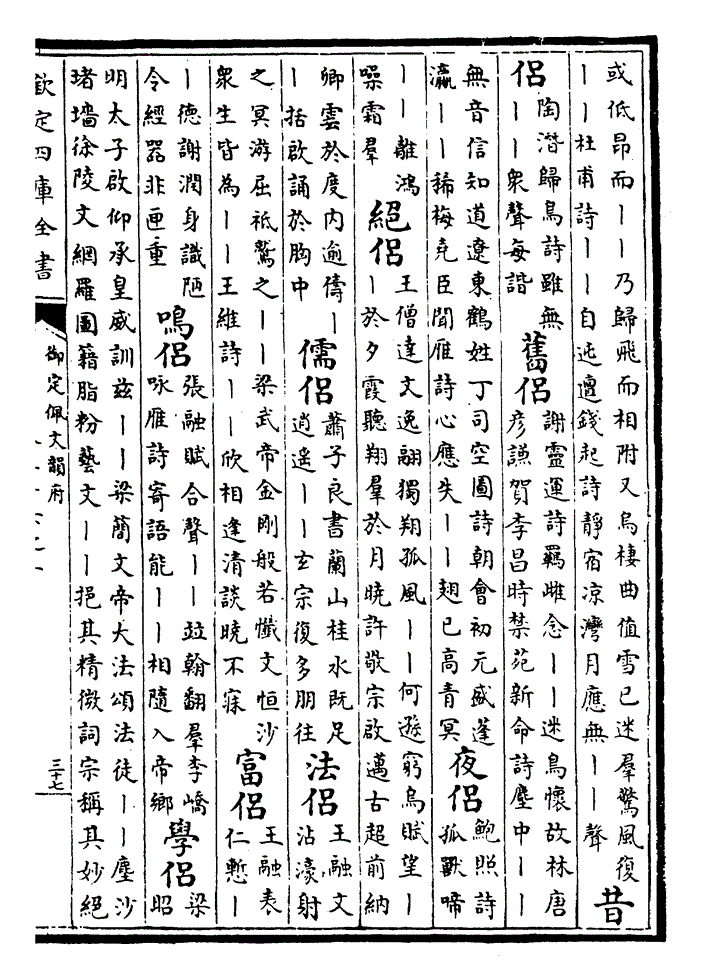 或低昂而丨丨乃歸飛而相附又烏棲曲值雪已迷羣驚風復
丨丨杜甫詩丨丨自迍邅錢起詩靜宿凉灣月應無丨丨聲
昔
侣
陶潛歸鳥詩雖無
丨丨衆聲每諧
舊侣
謝靈運詩羈雌念丨丨迷鳥懷故林唐
彦謙賀李昌時禁苑新命詩塵中丨丨
無音信知道遼東鶴姓丁司空圖詩朝會初元盛蓬
瀛丨丨稀梅堯臣聞雁詩心應失丨丨翅已高青冥
夜侣
鮑照詩
孤獸啼
丨丨離鴻
噪霜羣
絕侣
王僧達文逸翮獨翔孤風丨丨何遜窮烏賦望丨
丨於夕霞聽翔羣於月曉許敬宗啟邁古超前納
卿雲於度内逈儔丨
丨括啟誦於胸中
儒侣
蕭子良書蘭山桂水既足
逍遥丨丨玄宗復多朋往
法侣
王融文
沾濠射
之冥游屈祗鷲之丨丨梁武帝金剛般若懺文恒沙
衆生皆為丨丨王維詩丨丨欣相逢清談曉不寐
富侣
王融表
仁慙丨
丨德謝潤身識陋
令經器非匣重
鳴侣
張融賦合聲丨丨竝翰翻羣李嶠
咏雁詩寄語能丨丨相隨入帝鄉
學侣
梁
昭
明太子啟仰承皇威訓兹丨丨梁簡文帝大法頌法徒丨丨塵沙
堵墻徐陵文網羅圖籍脂粉藝文丨丨挹其精微詞宗稱其妙絕
欽定四庫全書
御定佩文韻府
三十七